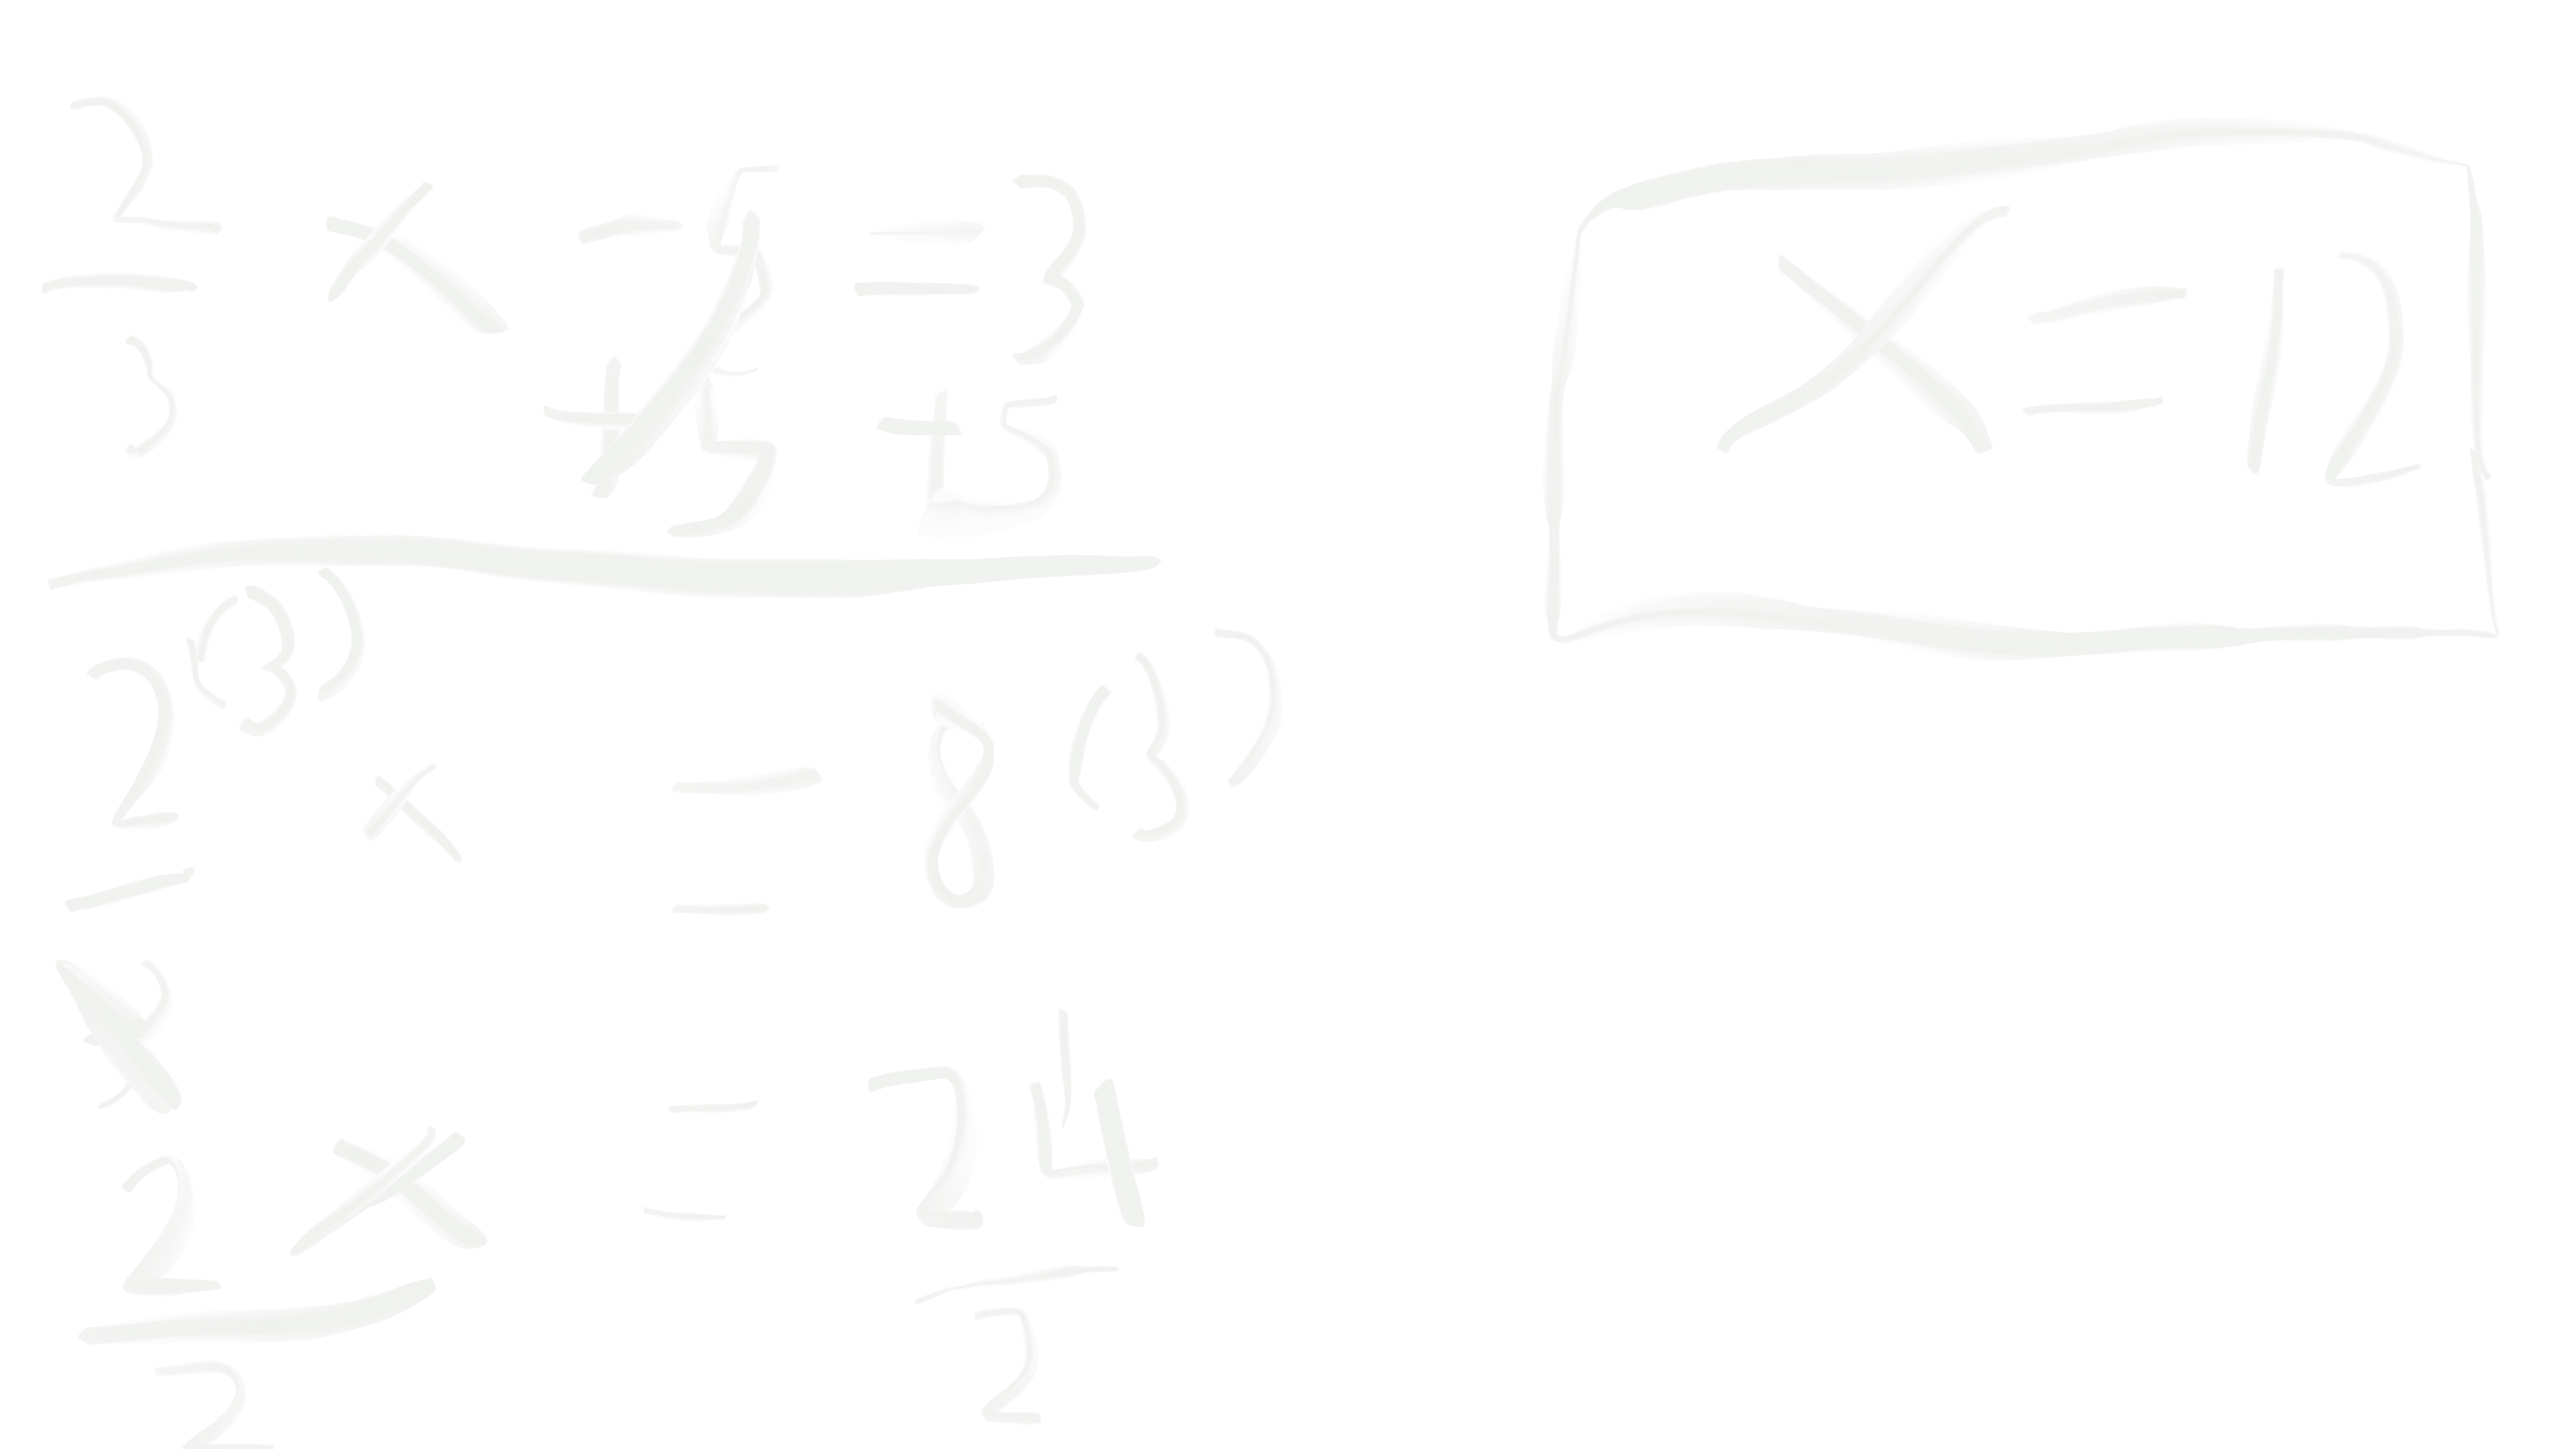 2/3 x - 5 = 3
+ 5 + 5
2(3)/3 x = 8(3)
2x/2 = 24/2
x = 12